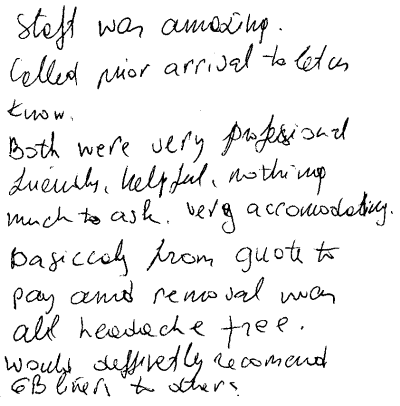 Staff was amazing.
Called prior arrival to let us
know.
Both were very profesional
friendly, helpful, nothing
much to ask. very accomodating.
Basiccaly from quote to
pay and removal was
all headache free.
would deffinetly recomend
GB liners to others